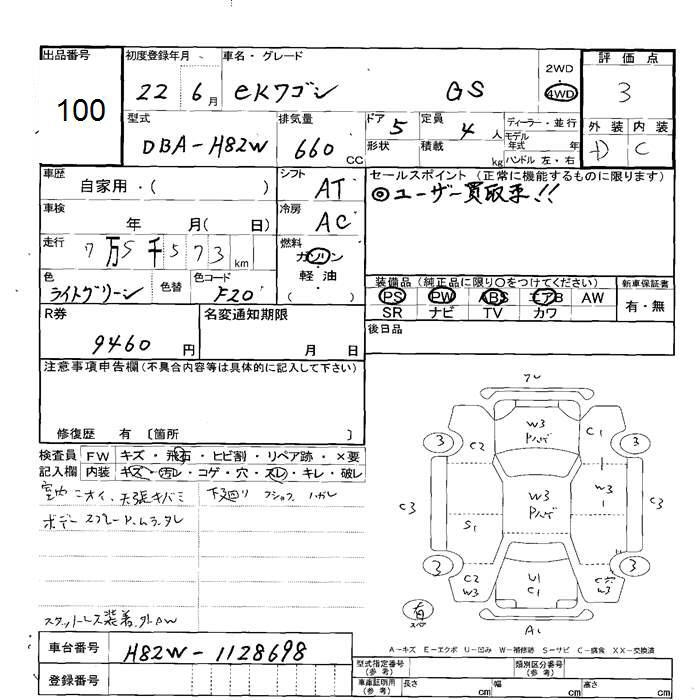 出品番号
100
初度登録年月
22 6月
車名・グレード
eKワゴン GS
2WD
4WD
評価点
3
外装 内装
D C
型式
DBA-H82W
排気量
660 CC
ドア 5
形状
定員 4 人
積載 kg
ディーラー・並行
モデル年式 年
ハンドル 左・右
車歴
自家用・( )
シフト
AT
車検
年 月( 日)
冷房
AC
走行
7万5千573 km
燃料
ガソリン
軽・油
( )
色
ライトグリーン
色替
色コード
F20
セールスポイント (正常に機能するものに限ります)
◎ユーザー買取車!!
装備品(純正品に限り○をつけてください)
PS PW ABS エアB AW
SR ナビ TV カワ
新車保証書
有・無
後日品
R券
9460 円
名変通知期限
月 日
注意事項申告欄(不具合内容等は具体的に記入して下さい)
修復歴 有 〔箇所 〕
検査員記入欄
FW キズ・飛石・ヒビ割・リペア跡・×要
内装 キズ・汚レ・コゲ・穴・スレ・キレ・破レ
室内ニオイ、天張キバミ
下廻り
ボデースプレー
装着
車台番号
H82W-1128698
登録番号
アレ
3 C2 W3 C1 3
C3 W3 W1 C3
S1
3 C2 W3 U1 C1 W3 3
有
A1
A-キズ E-エクボ U-凹み W-補修跡 S-サビ C-腐食 XX-交換済
型式指定番号(参考)
類別区分番号
車庫証明用(参考)
長さ cm 幅 cm 高さ cm